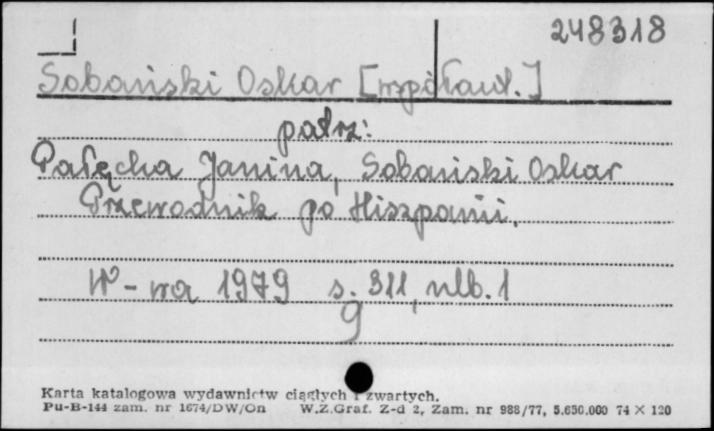 248318
Sobański Oskar [współaut.]
patrz:
Pałęcka Janina, Sobański Oskar
Przewodnik po Hiszpanii.
W-wa 1979 s. 311, nlb. 1
9
Karta katalogowa wydawnictw ciągłych i zwartych.
Pu-B-144 zam. nr 1674/DW/On W.Z.Graf. Z-d 2, Zam. nr 988/77, 5.650.000 74 × 120